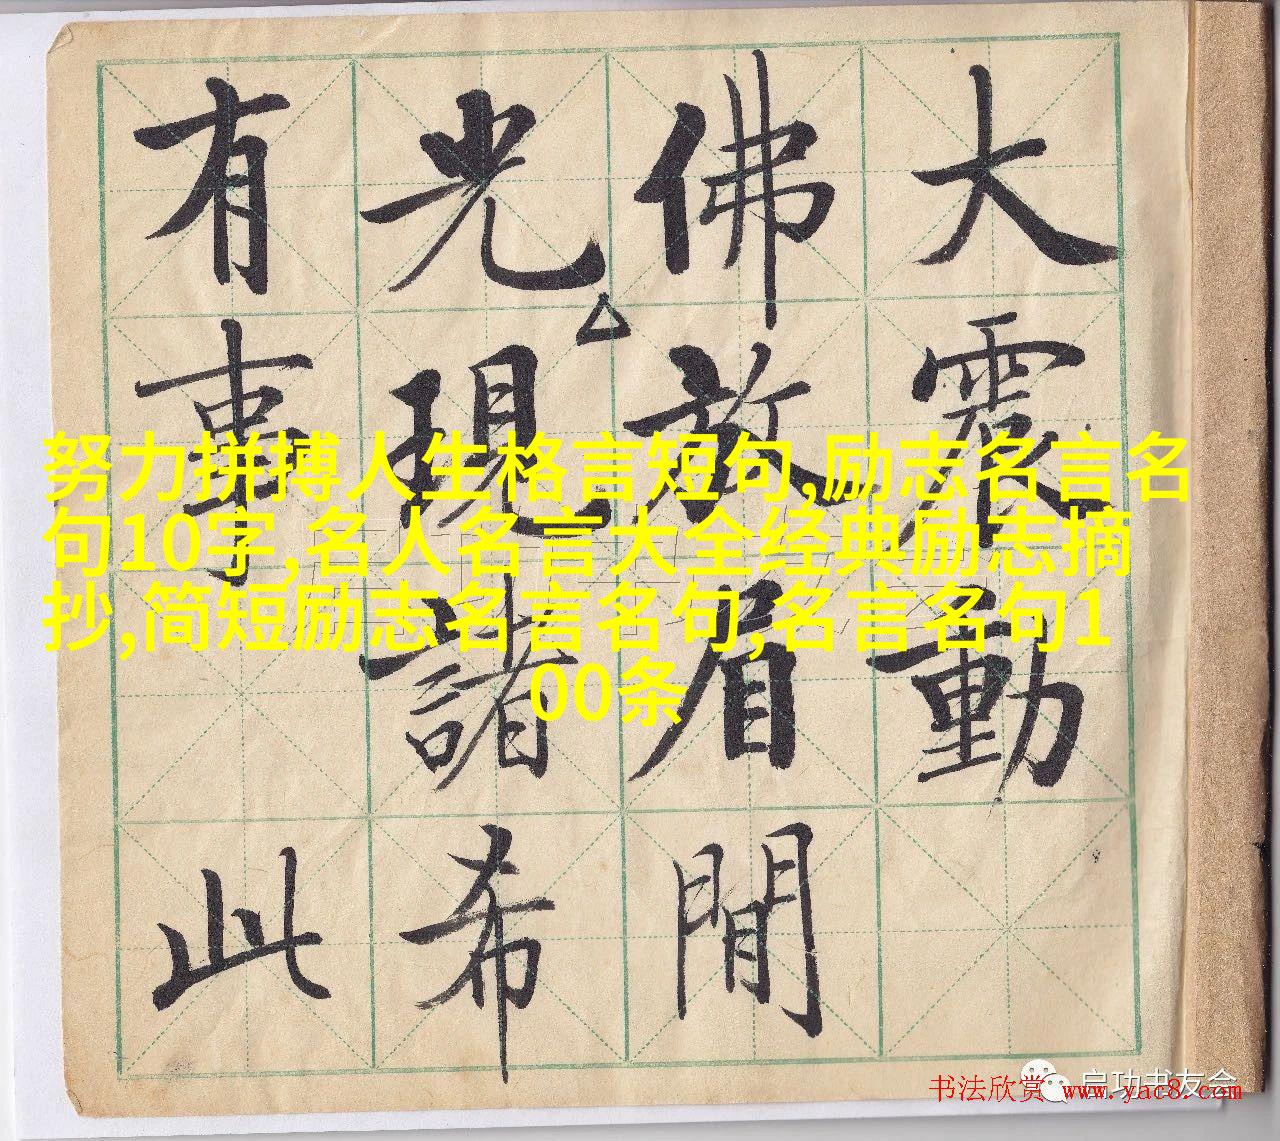 大震動
佛放眉間
光現諸希
有事此
努力拼搏人生格言短句,励志名言名
句10字,名人名言大全经典励志摘
抄,简短励志名言名句,名言名句1
00条
启功书友会
书法欣赏 www.yac8.com